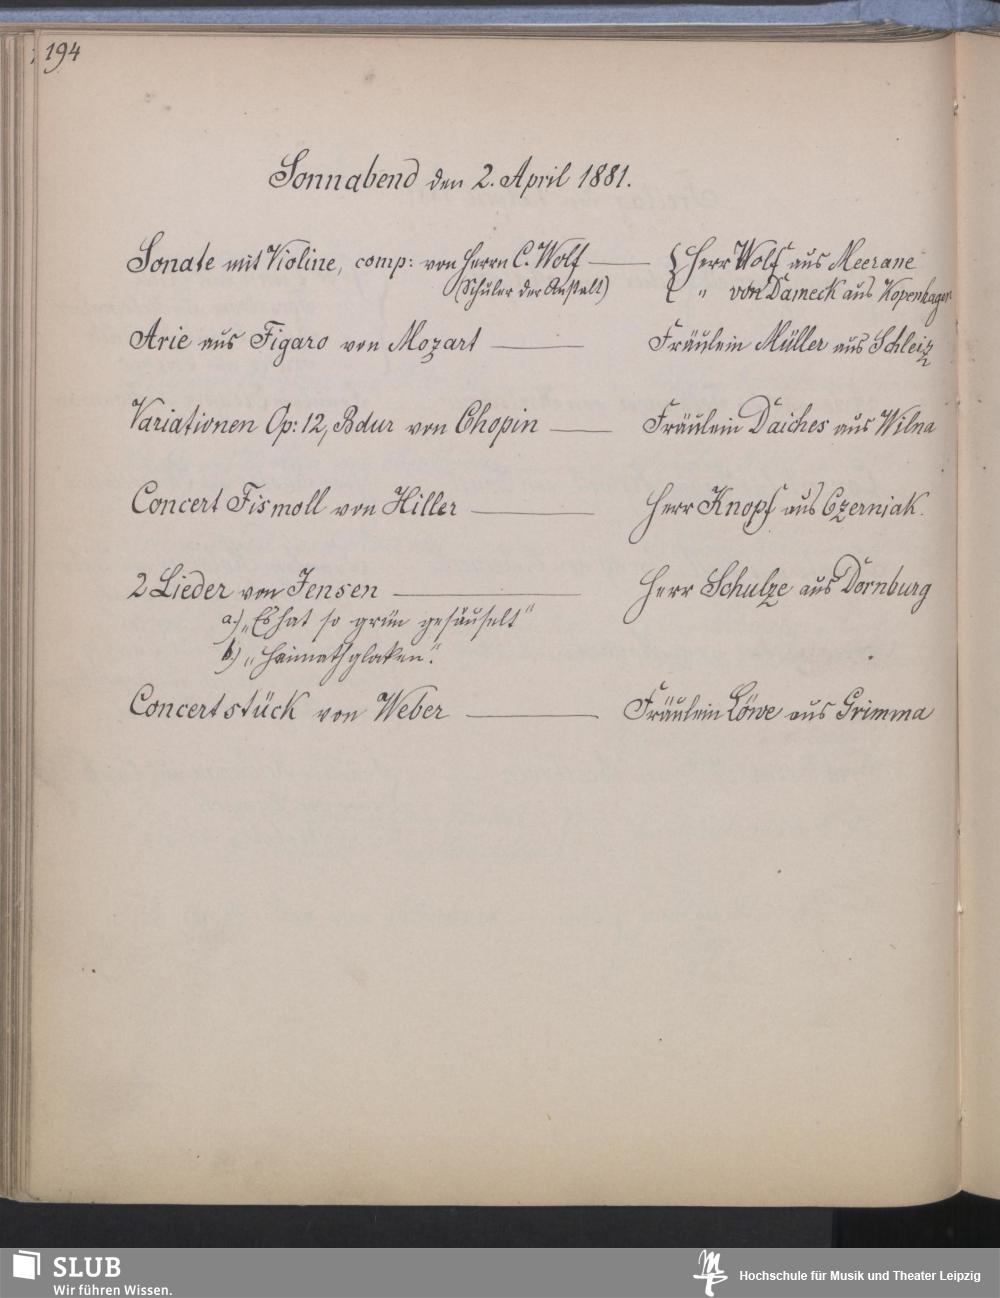 194
Sonnabend den 2. April 1881.
Sonate mit Violine, comp: von Herrn C. Wolf — { Herr Wolf aus Meerane
(Schüler der Anstalt) { " von Dameck aus Kopenhagen
Arie aus Figaro von Mozart — Fräulein Müller aus Schleiz
Variationen Op: 12, Bdur von Chopin — Fräulein Daiches aus Wilna
Concert Fismoll von Hiller — Herr Knopf aus Czerniak.
2 Lieder von Jensen — Herr Schulze aus Dornburg
a.) „Es hat so grün gesäuselt"
b.) „Heimathglocken".
Concertstück von Weber — Fräulein Löwe aus Grimma
SLUB
Wir führen Wissen.
Hochschule für Musik und Theater Leipzig